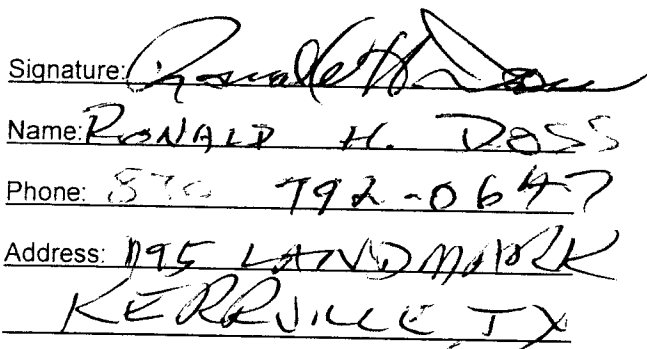 Signature: Ronald H. Doss
Name: RONALD H. DOSS
Phone: 830 792-0647
Address: 1195 LANDMARK
KERRVILLE, TX